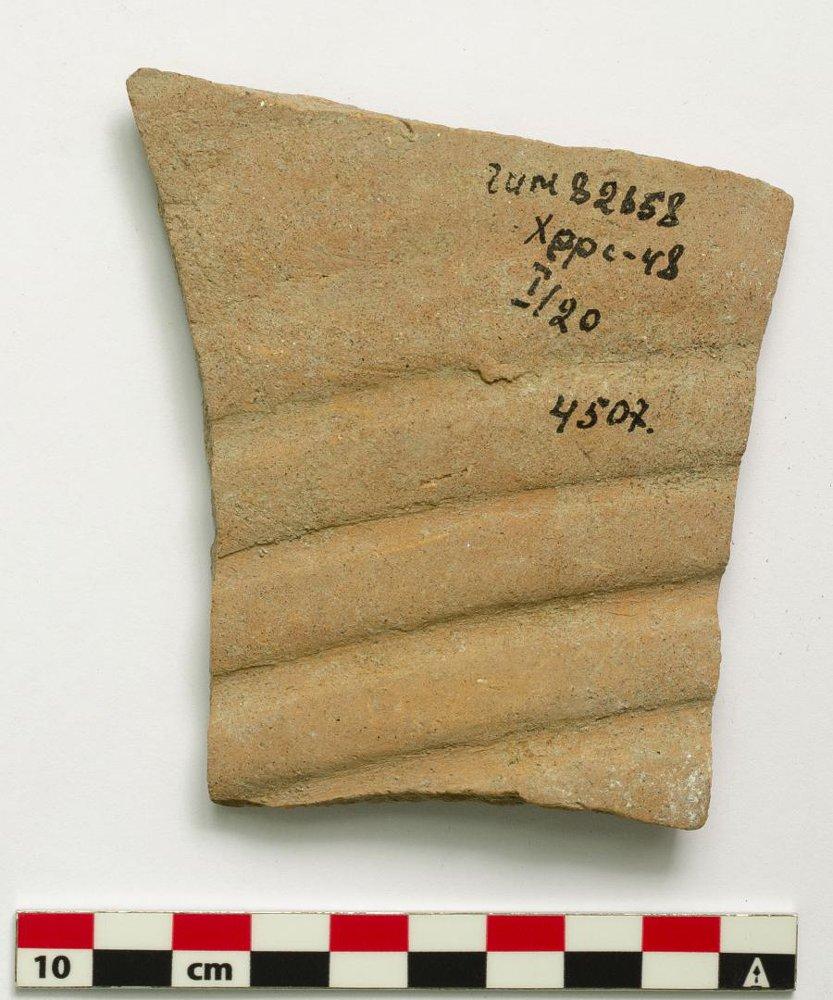 гим 82658
Херс-48
I/20
4507.
10 cm